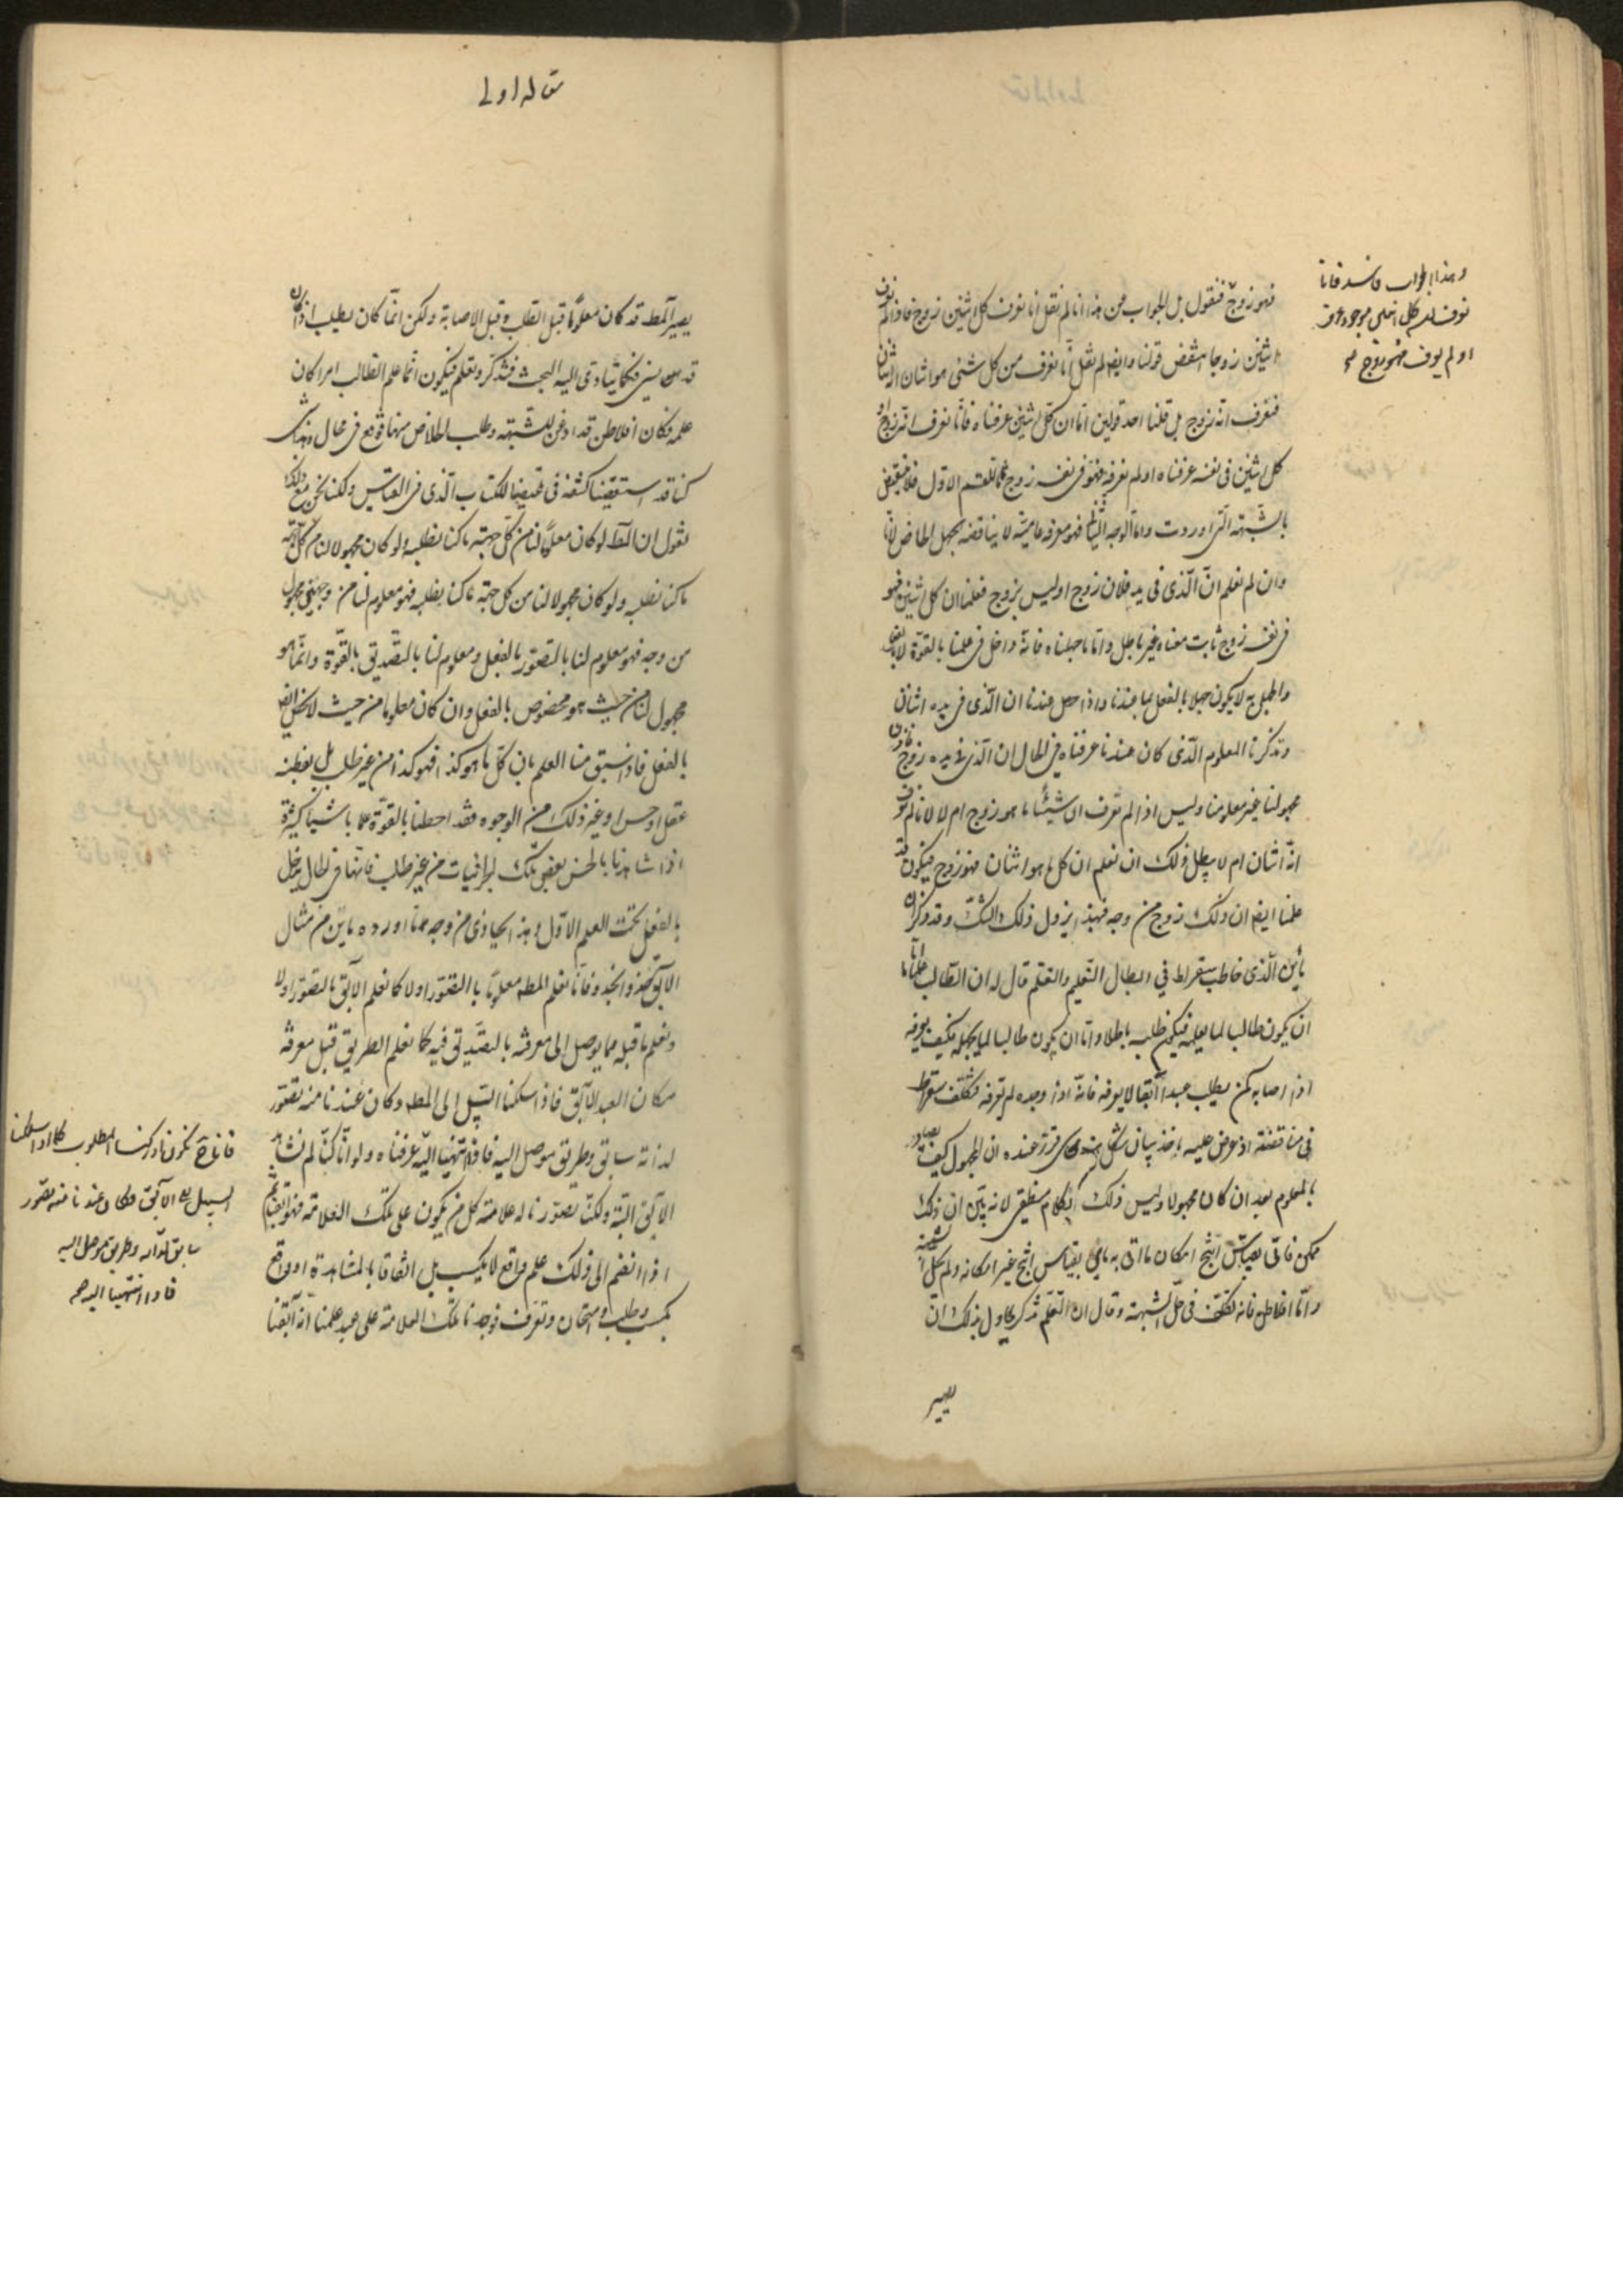 فهو زوج فنقول بل الجواب عن هذا انا لم نقل انا نعرف كل اثنين زوج فاذا لم نعرف
اثنين زوجا انتقض قولنا وايضا لم نقل انا نعرف من كل شئ هو اثنان انه اثنان
فنعرف انه زوج بل قلنا احد قولين اما ان كل اثنين عرفناه فانا نعرف انه زوج او
كل اثنين فى نفسه عرفناه او لم نعرفه فهو فى نفسه زوج اما القسم الاول فلا ينتقض
بالشبهة التى اوردت واما الوجه الثانى فهو معرفة عامية لا يناقضه الجهل الخاص لانا
وان لم نعلم ان الذى فى يد فلان زوج او ليس بزوج فعلمنا ان كل اثنين فهو
فى نفسه زوج ثابت معنا غير باطل واما ما جهلناه فانه داخل فى علمنا بالقوة لا بالفعل
والجهل به لا يكون جهلا بالفعل بما عندنا واذا حصل عندنا ان الذى فى يده اثنان
وتذكرنا المعلوم الذى كان عندنا عرفناه فى الحال ان الذى فى يده زوج فاذن
مجهولنا غير معلومنا وليس اذا لم نعرف ان شيئا ما هو زوج ام لا لانا لم نعرف
انه اثنان ام لا يبطل ذلك ان نعلم ان كل ما هو اثنان فهو زوج فيكون قد
علمنا ايضا ان ذلك زوج من وجه فبهذا يزول ذلك الشك وقد ذكر ان
مانن الذى خاطب سقراط فى ابطال التعليم والتعلم قال له ان الطالب علما ما اما
ان يكون طالبا لما يعلمه فيكون طلبه باطلا واما ان يكون طالبا لما يجهله فكيف يعرفه
اذا اصابه كمن يطلب عبدا آبقا لا يعرفه فانه اذا وجده لم يعرفه فتكلف سقراط
فى مناقضته اذ عرض عليه ماخذ بيان شكل هندسى قرر عنده ان المجهول كيف يصاد
بالمعلوم بعد ان كان مجهولا وليس ذلك بكلام منطقى لانه بين ان ذلك
ممكن فاتى بقياس انتج امكان ما اتى به مانن بقياس انتج غير امكانه ولم يحل الشبهة
واما افلاطن فانه تكلف فى حل الشبهة وقال ان التعلم تذكر يحاول بذلك ان
يصير
وهذا الجواب فاسد فانا
نعرف ان كل اثنين موجود عرف
او لم يعرف فهو زوج
مقاله اولے
يصير المط قد كان معلوما قبل الطلب وقبل الاصابة ولكن انما كان يطلب اذ كان
قد نسى فكما يتادى اليه البحث فتذكر وتعلم فيكون انما علم الطالب امرا كان
علمه فكان افلاطن قد اذعن للشبهة وطلب الخلاص منها فوقع فى محال وهذا شئ
كنا قد استقصينا كشفه فى تلخيصنا للكتاب الذى فى القياس ولكنا نحن مع ذلك
نقول ان المط لو كان معلوما لنا من كل جهة ما كنا نطلبه ولو كان مجهولا لنا من كل جهة
ما كنا نطلبه ولو كان مجهولا لنا من كل جهة ما كنا نطلبه فهو معلوم لنا من وجهين مجهول
من وجه فهو معلوم لنا بالتصور بالفعل ومعلوم لنا بالتصديق بالقوة وانما هو
مجهول لنا من حيث هو مخصوص بالفعل وان كان معلوما من حيث لا يخص ايضا
بالفعل فاذا سبق منا العلم بان كل ما هو كذا فهو كذا من غير طلب بل بفطنة
عقل او حس او غير ذلك من الوجوه فقد احطنا بالقوة علما باشيا كثيرة
اذا شاهدنا بالحس بعض تلك الجزئيات من غير طلب فانها فى الحال يدخل
بالفعل تحت العلم الاول وهذا يحاذى من وجه ما اورده مانن من مثال
الآبق حذو الحذو فانا نعلم المط معلوما بالتصور اولا كما نعلم الآبق بالتصور اولا
ونعلم ما قبله مما يوصل الى معرفته بالتصديق فيه كما نعلم الطريق قبل معرفة
مكان العبد الآبق فاذا سلكنا السبيل الى المط وكان عندنا منه تصور
لذاته سابق وطريق موصل اليه فاذا انتهينا اليه عرفناه ولو انا كنا لم نشاهد
الآبق البتة ولكنا تصورنا له علامة كل من يكون على تلك العلامة فهو آبقنا ثم
اذا انضم الى ذلك علم واقع لا بكسب بل اتفاقا بالمشاهدة او واقع
بكسب وطلب وامتحان وتعرف فوجدنا تلك العلامة على عبد علمنا انه آبقنا
فانا ح نكون ادركنا المطلوب كما اذا سلكنا
السبيل الى الآبق وكان عندنا منه تصور
سابق لذاته وطريق موصل اليه
فاذا انتهينا اليه